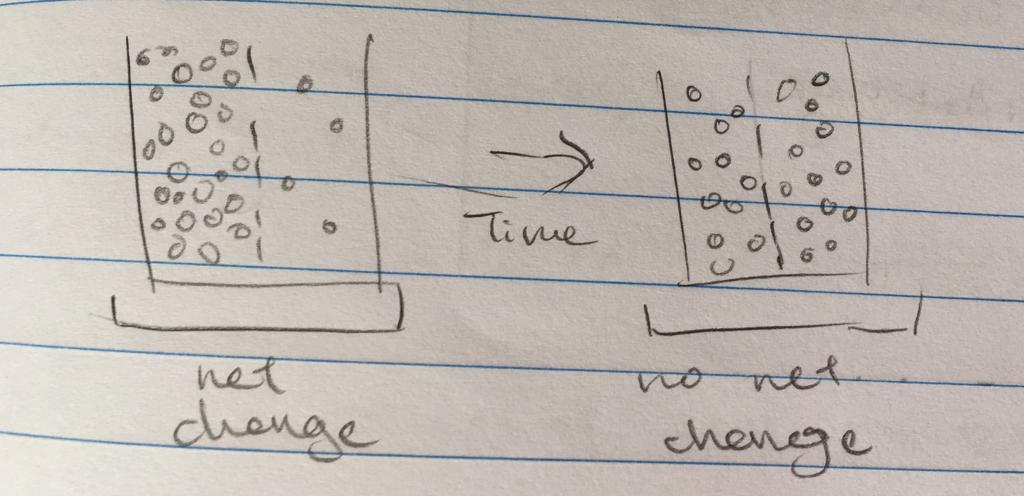 Time
net
change
no net
change